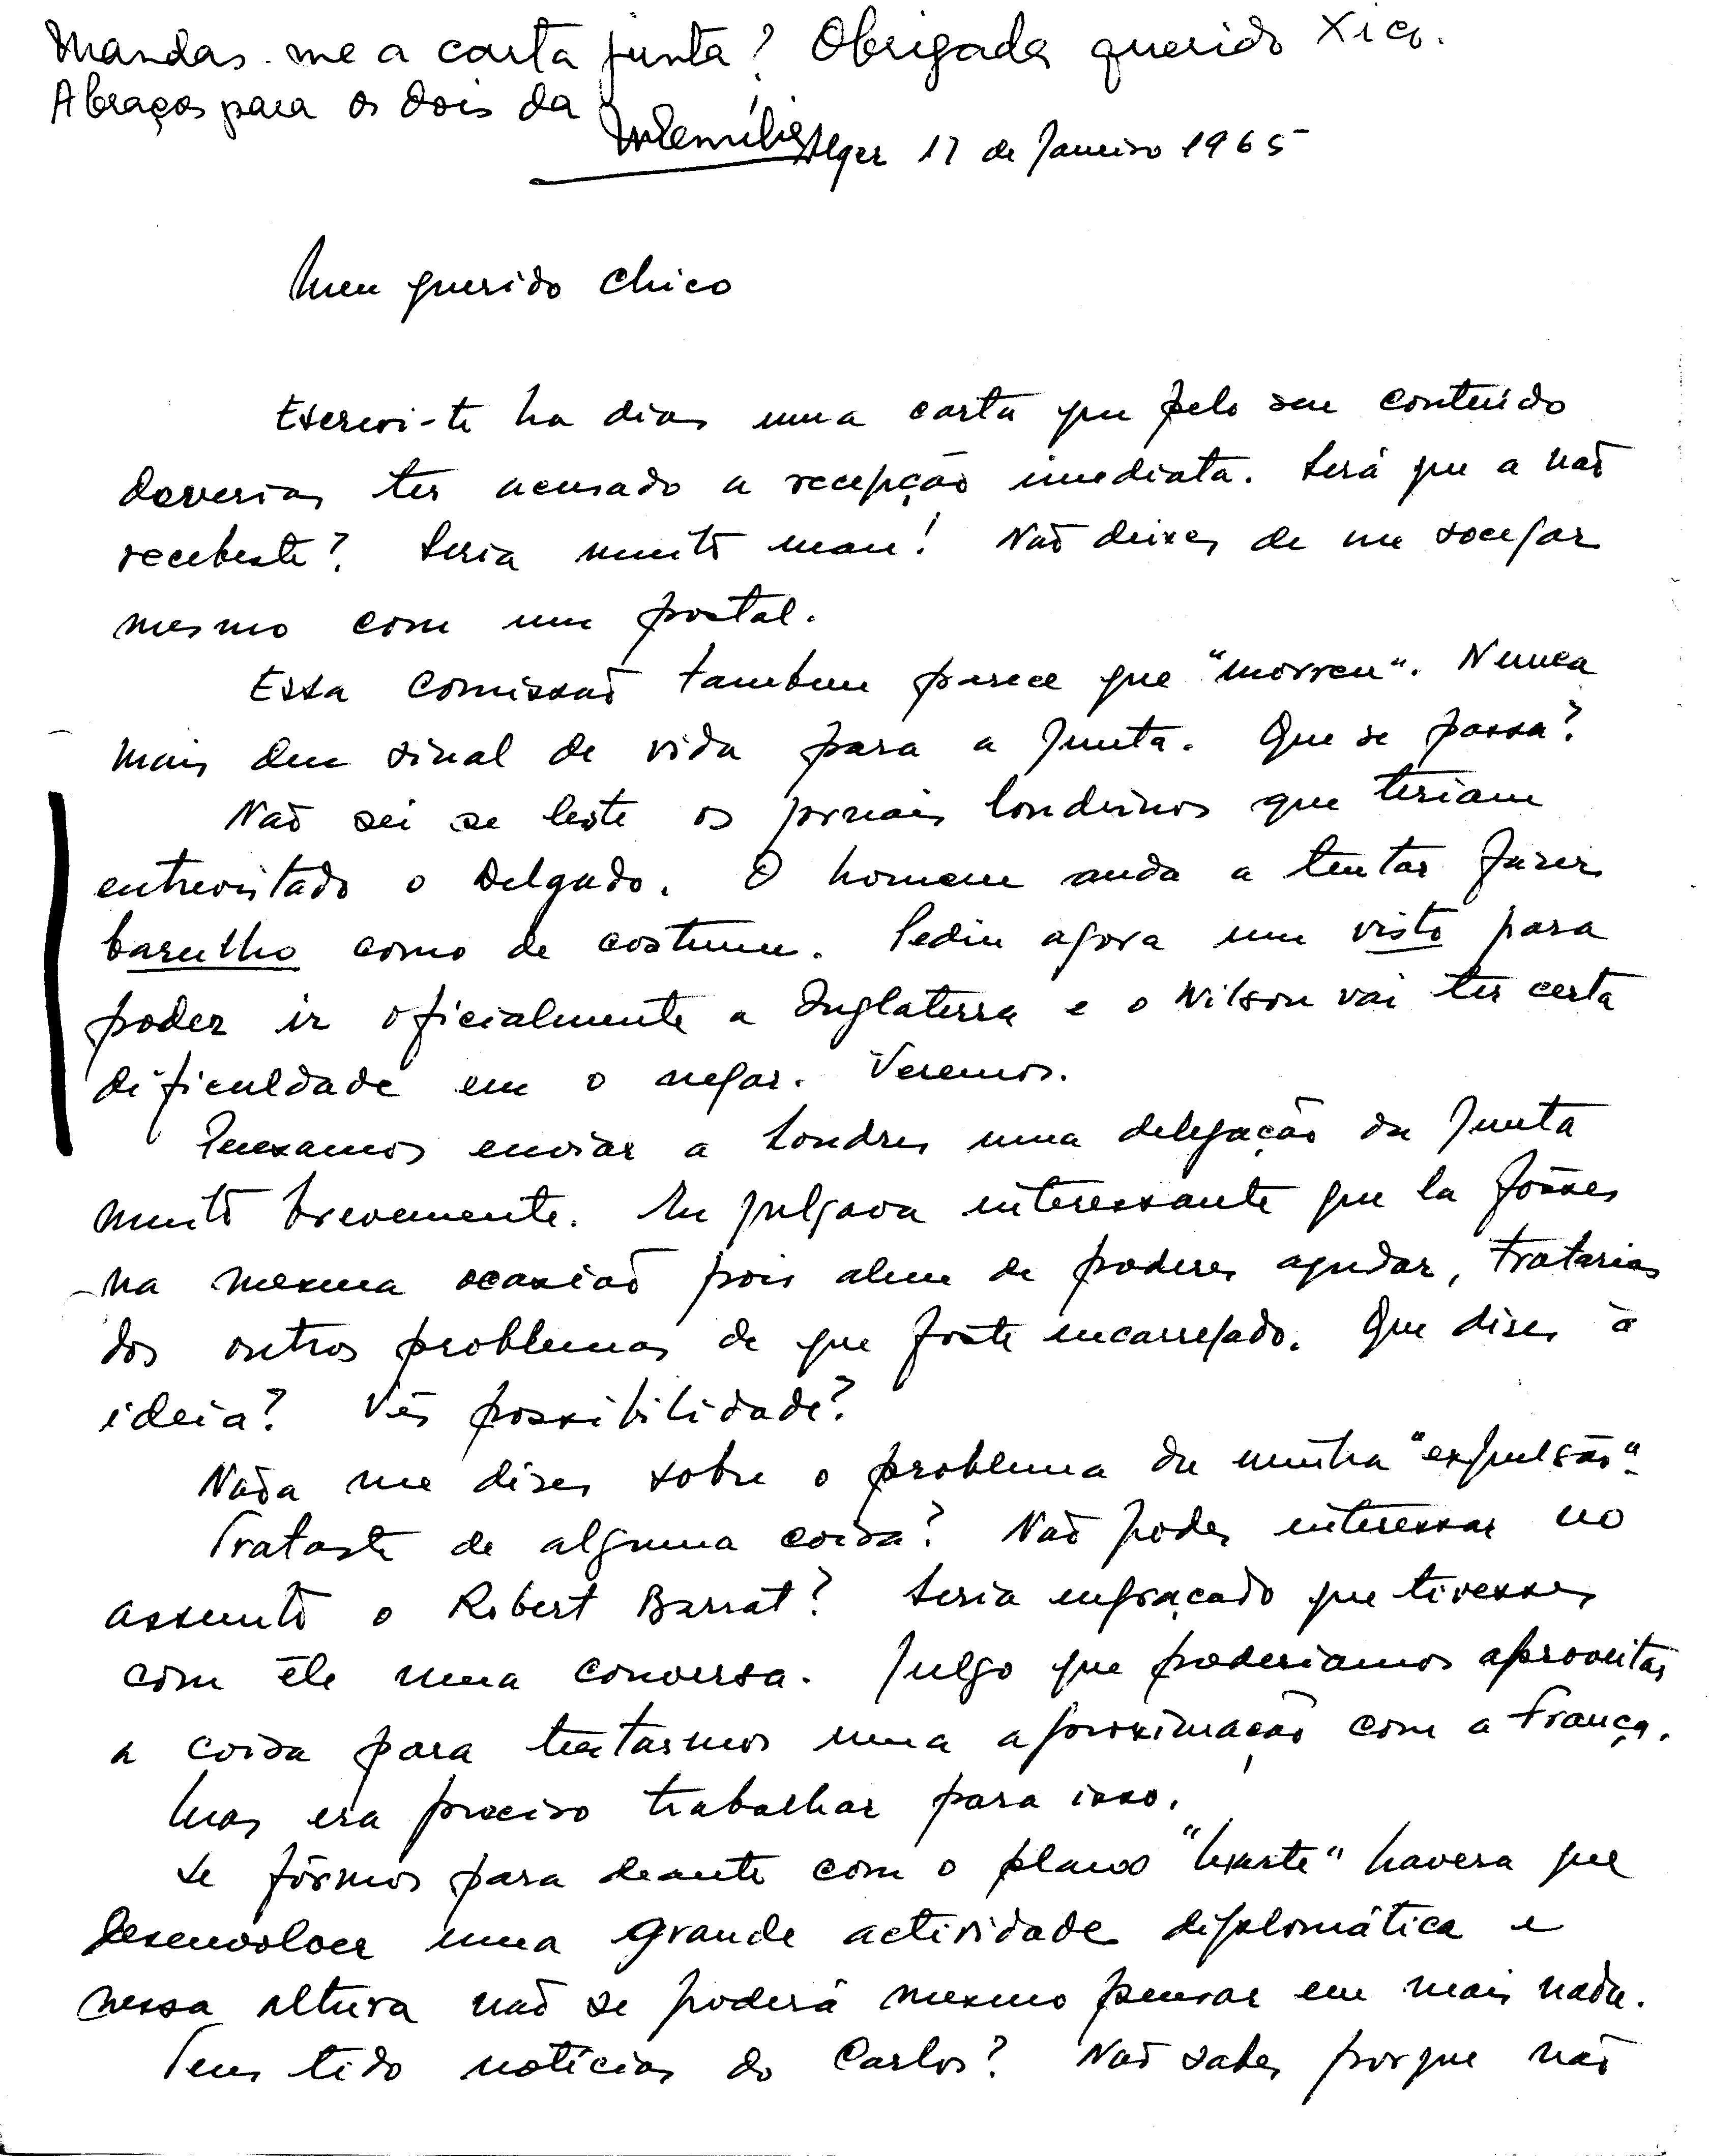 Mandas-me a carta junta? Obrigada querido Xico.
Abraços para os dois da
Mᵃ Emília
Alger 17 de Janeiro 1965
Meu querido Chico
Escrevi-te ha dias uma carta que pelo seu conteúdo
deverias ter acusado a recepção imediata. Será que a não
recebeste? Seria muito mau! Não deixes de me socegar
mesmo com um postal.
Essa Comissão tambem parece que "morreu". Nunca
mais deu sinal de vida para a Junta. Que se passa?
Não sei se leste os jornais londrinos que teriam
entrevistado o Delgado. O homem anda a tentar fazer
barulho como de costume. Pediu agora um visto para
poder ir oficialmente a Inglaterra e o Wilson vai ter certa
dificuldade em o negar. Veremos.
Pensamos enviar a Londres uma delegação da Junta
muito brevemente. Eu julgava interessante que la fôsses
na mesma ocasião pois alem de poderes ajudar, tratarias
dos outros problemas de que foste encarregado. Que dizes à
ideia? Vês possibilidade?
Nada me dizes sobre o problema da minha "expulsão".
Trataste de alguma coisa? Não podes interessar no
assunto o Robert Barrat? Seria engraçado que tivesses
com êle uma conversa. Julgo que poderiamos aproveitar
a coisa para tentarmos uma aproximação com a França.
Mas era preciso trabalhar para isso.
Se fôrmos para deante com o plano havera que
desenvolver uma grande actividade diplomática e
nessa altura não se poderá mesmo pensar em mais nada.
Tens tido notícias do Carlos? Não sabes porque não